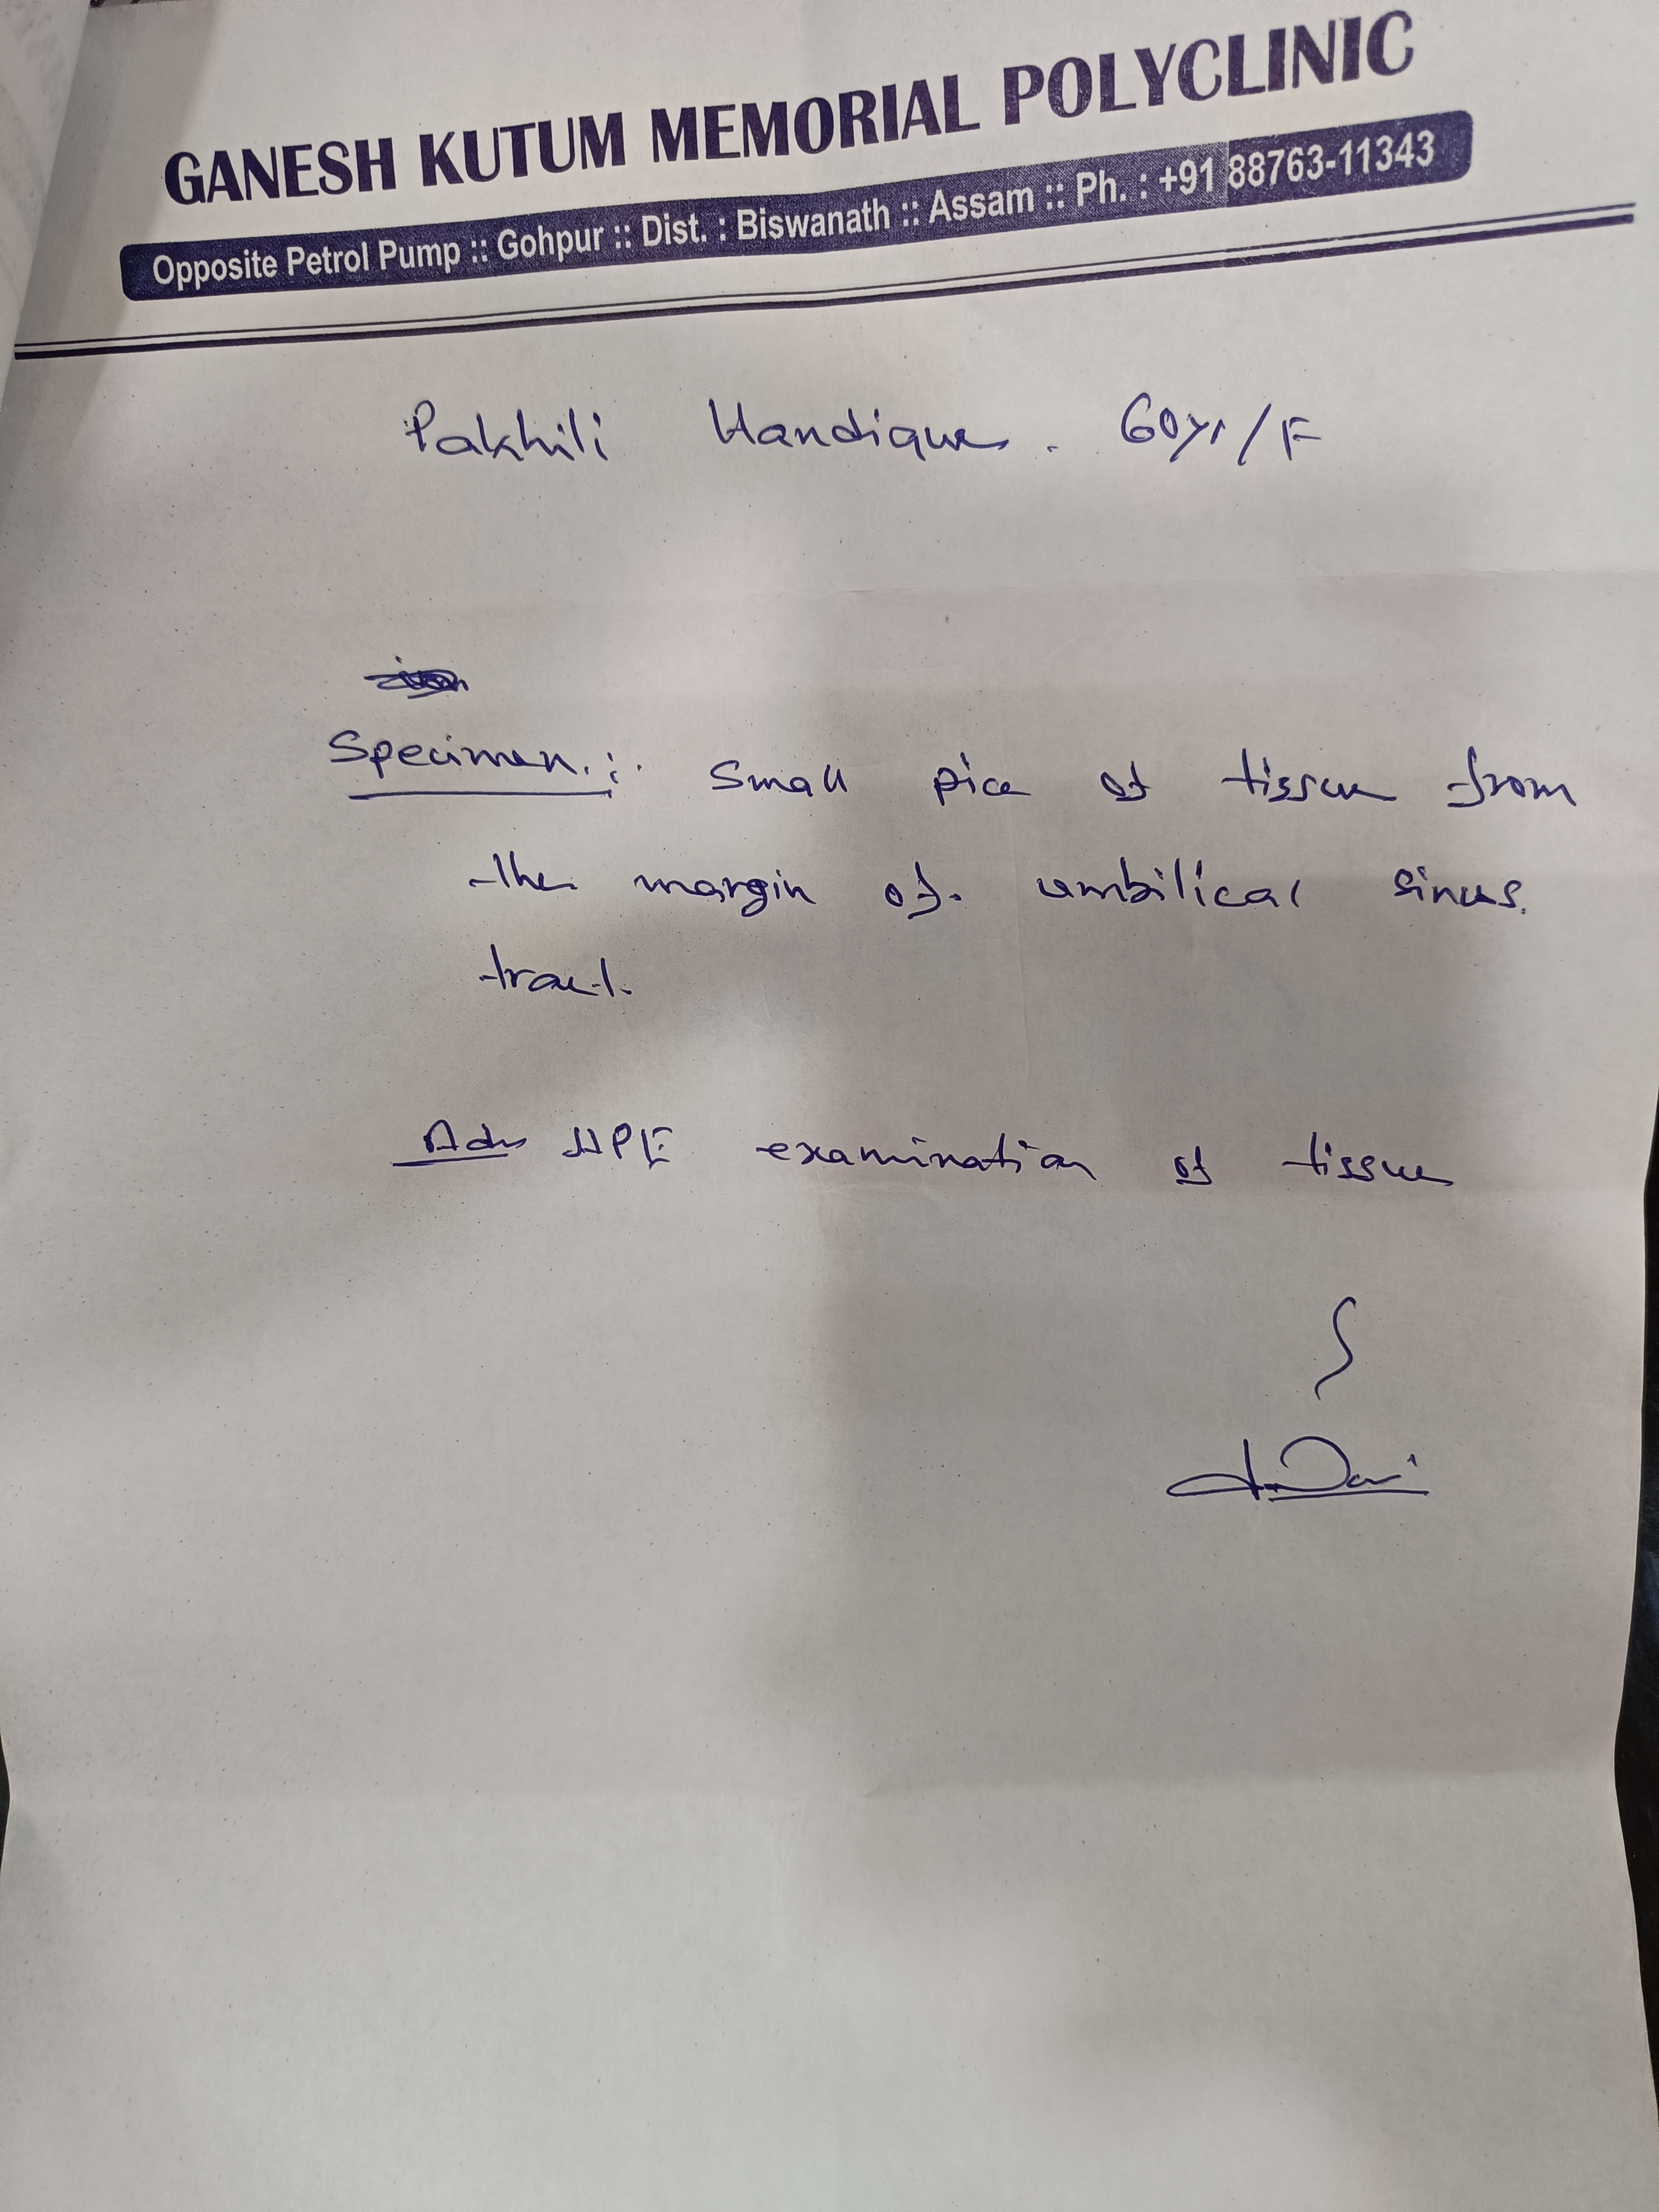 GANESH KUTUM MEMORIAL POLYCLINIC
Opposite Petrol Pump :: Gohpur :: Dist. : Biswanath :: Assam :: Ph. : +91 88763-11343
Pakhili Handique. 60yr/F
Specimen.: Small pice of tissue from
the margin of umbilical sinus
tract.
Adv HPE examination of tissue